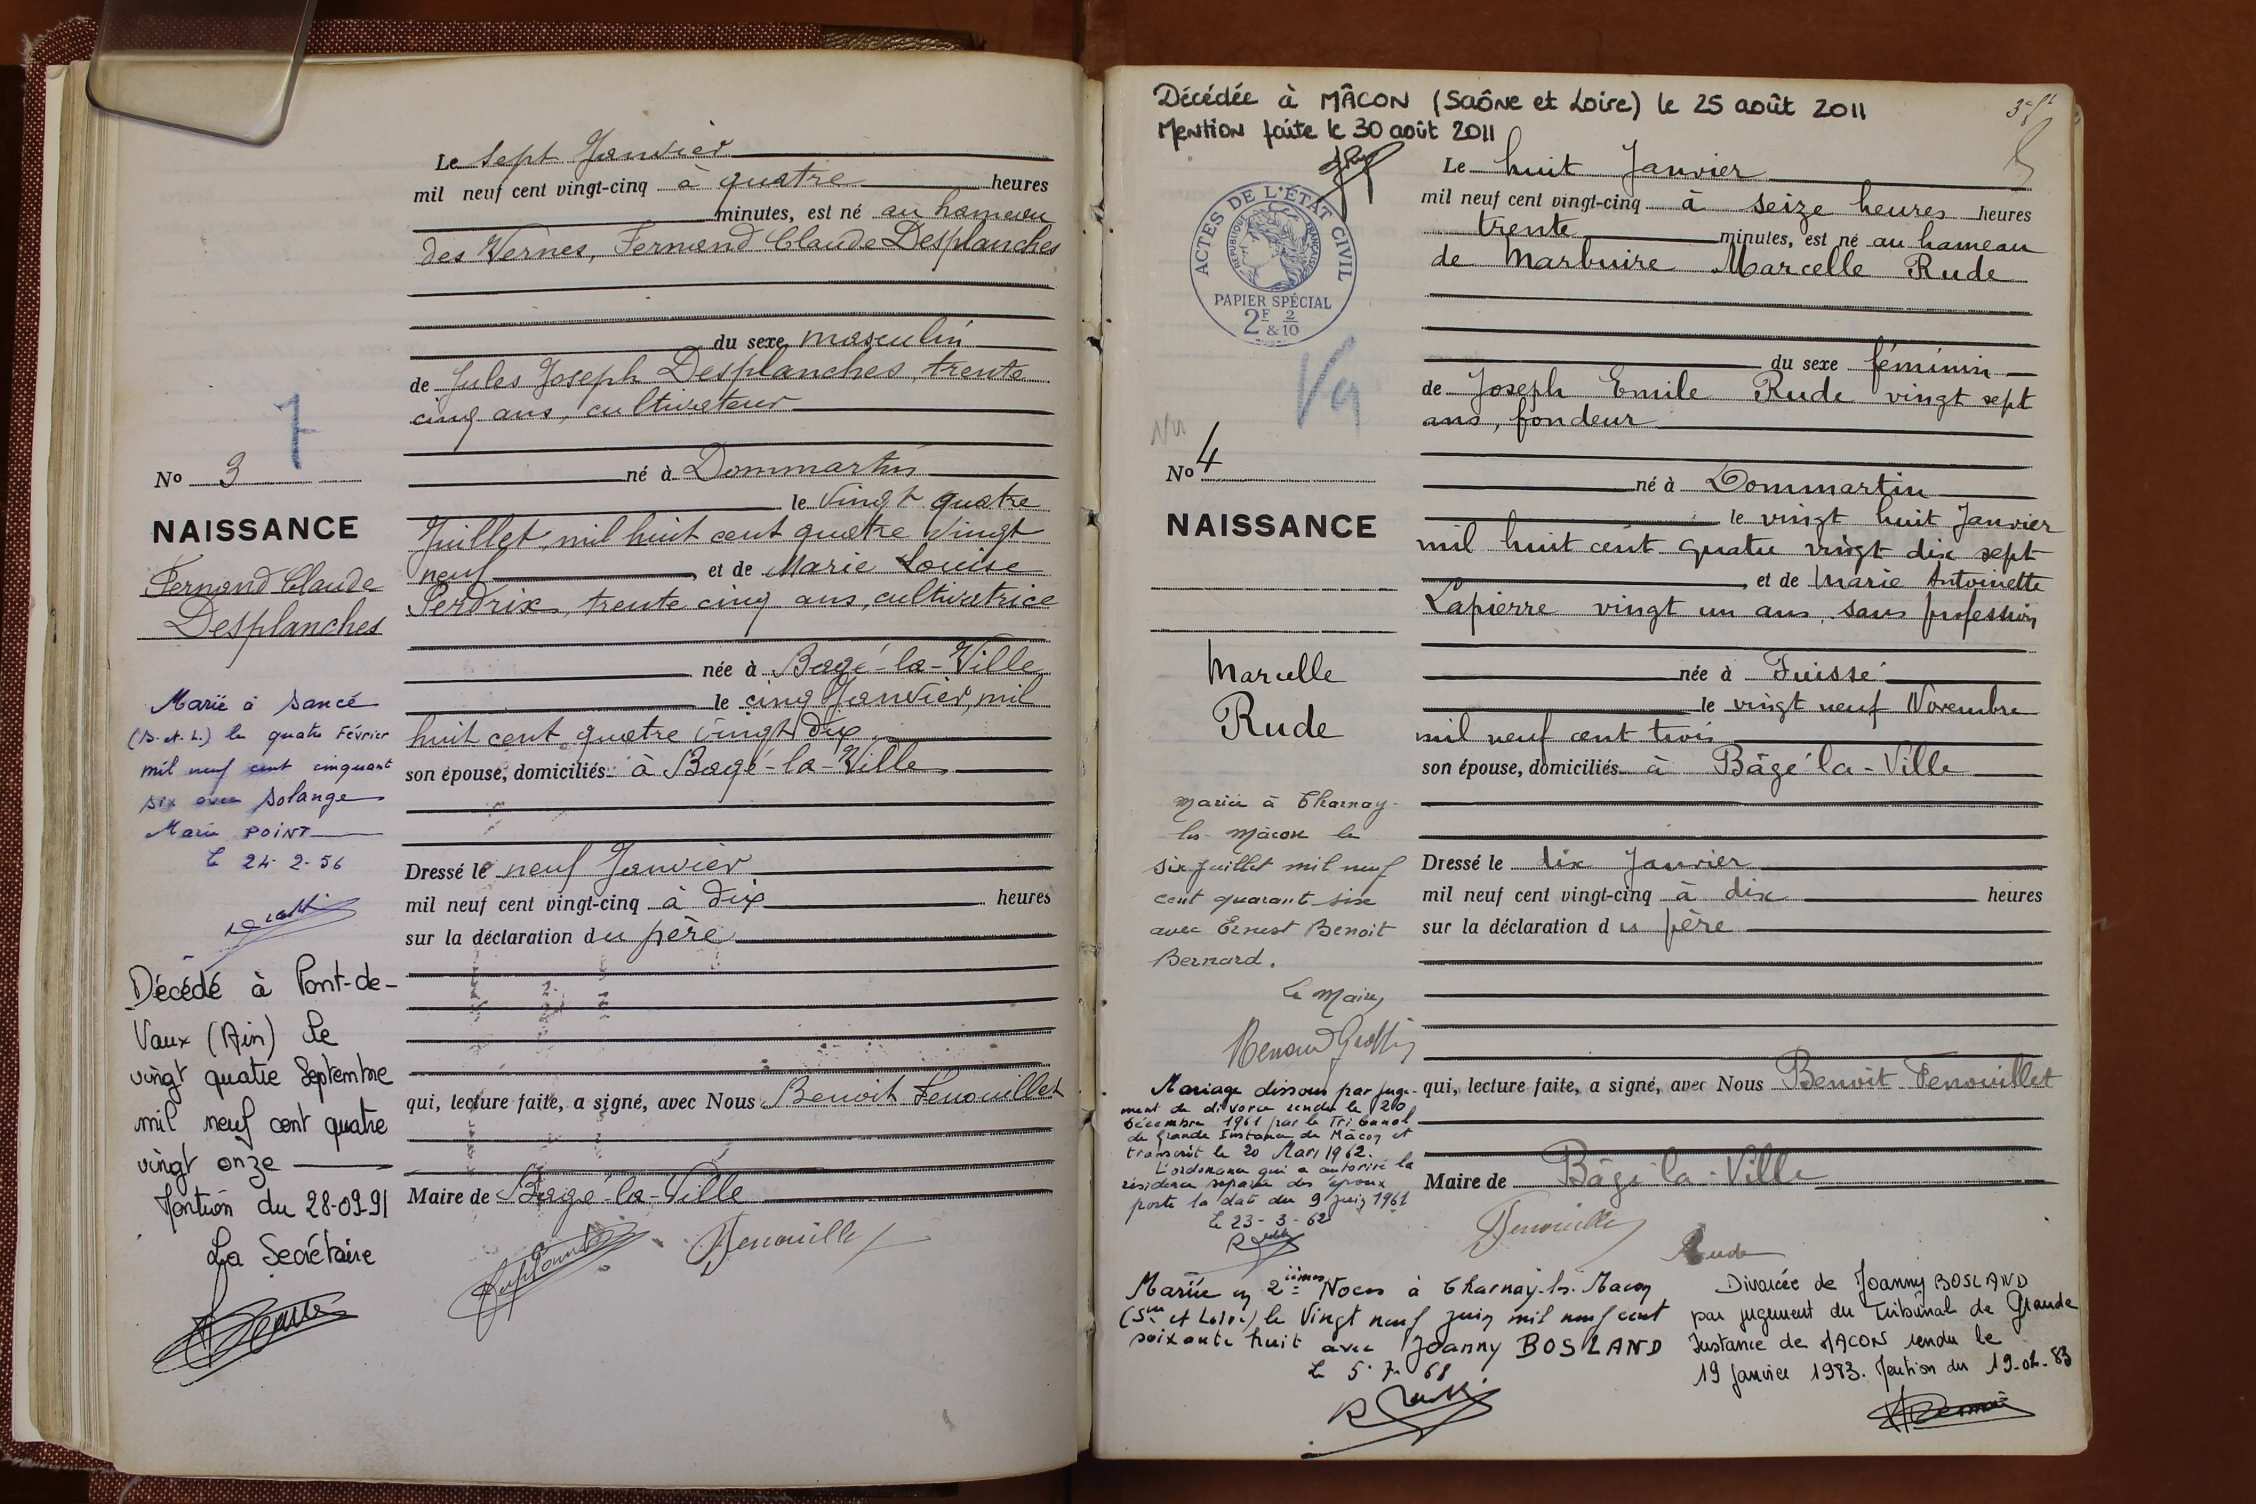 Le sept Janvier
mil neuf cent vingt-cinq à quatre heures
minutes, est né au hameau
des Vernes, Fernand Claude Desplanches
du sexe masculin
de Jules Joseph Desplanches, trente
cinq ans, cultivateur
né à Dommartin
le vingt quatre
Juillet, mil huit cent quatre vingt
neuf, et de Marie Louise
Perdrix, trente cinq ans, cultivatrice
née à Bagé-la-Ville
le cinq Janvier, mil
huit cent quatre vingt dix
son épouse, domiciliés à Bagé-la-Ville
Dressé le neuf Janvier
mil neuf cent vingt-cinq à dix heures
sur la déclaration du père
qui, lecture faite, a signé, avec Nous Benoit Fenouillet
Maire de Bagé-la-Ville
Fenouillet
7
No 3
NAISSANCE
Fernand Claude
Desplanches
Marié à Sancé
(S. et L.) le quatre Février
mil neuf cent cinquante
six avec Solange
Marie POINT
le 24-2-56
Décédé à Pont-de-
Vaux (Ain) le
vingt quatre Septembre
mil neuf cent quatre
vingt onze
Mention du 28-09-91
La Secrétaire
Décédée à MÂCON (Saône et Loire) le 25 août 2011
Mention faite le 30 août 2011
ACTES DE L'ÉTAT CIVIL
RÉPUBLIQUE FRANÇAISE
PAPIER SPÉCIAL
2F 2
& 10
Le huit Janvier
mil neuf cent vingt-cinq à seize heures heures
trente minutes, est né au hameau
de Marbuire Marcelle Rude
du sexe féminin
de Joseph Emile Rude vingt sept
ans, fondeur
né à Dommartin
le vingt huit Janvier
mil huit cent quatre vingt dix sept
, et de Marie Antoinette
Lapierre vingt un ans, sans profession
née à Fuissé
le vingt neuf Novembre
mil neuf cent trois
son épouse, domiciliés à Bâgé-la-Ville
Dressé le dix Janvier
mil neuf cent vingt-cinq à dix heures
sur la déclaration du père
qui, lecture faite, a signé, avec Nous Benoit Fenouillet
Maire de Bâgé-la-Ville
Fenouillet
Rude
No 4
NAISSANCE
Marcelle
Rude
Mariée à Charnay-
les-Mâcon le
six juillet mil neuf
cent quarante six
avec Ernest Benoit
Bernard.
Le Maire,
Mariage dissous par juge-
ment de divorce rendu le 20
Décembre 1961 par le Tribunal
de Grande Instance de Mâcon et
transcrit le 20 Mars 1962.
L'ordonnance qui a autorisé la
résidence séparée des époux
porte la date du 9 juin 1961
le 23-3-62
Mariée en 2ièmes Noces à Charnay-les-Macon
(Sne et Loire) le Vingt neuf juin mil neuf cent
soixante huit avec Joanny BOSLAND
le 5-7-68
Divorcée de Joanny BOSLAND
par jugement du Tribunal de Grande
Instance de MACON rendu le
19 Janvier 1983. Mention du 19-04-83